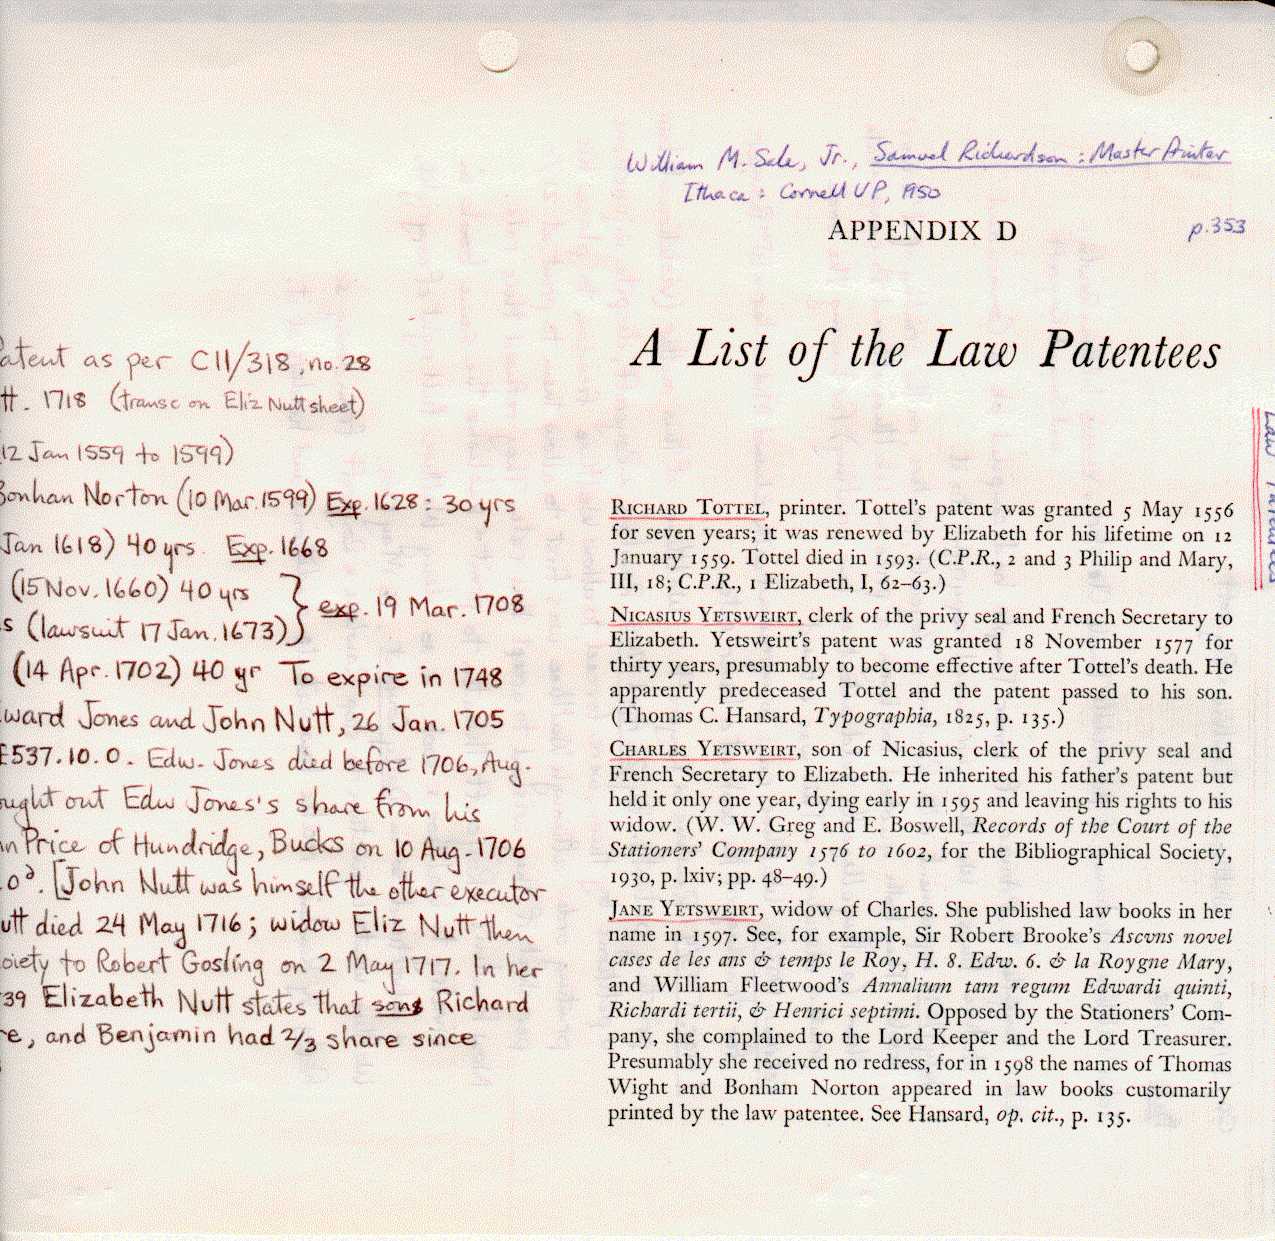 William M. Sale, Jr., Samuel Richardson : Master Printer
Ithaca : Cornell UP, 1950
APPENDIX D
p.353
A List of the Law Patentees
Law Patentees
Patent as per C11/318, no. 28
tt. 1718 (transc on Eliz Nutt sheet)
12 Jan 1559 to 1599)
Bonhan Norton (10 Mar. 1599) Exp. 1628 : 30 yrs
Jan 1618) 40 yrs. Exp. 1668
(15 Nov. 1660) 40 yrs
exp. 19 Mar. 1708
s (lawsuit 17 Jan. 1673)
(14 Apr. 1702) 40 yr To expire in 1748
ward Jones and John Nutt, 26 Jan. 1705
£537.10.0. Edw. Jones died before 1706, Aug.
ught out Edw Jones's share from his
n Price of Hundridge, Bucks on 10 Aug. 1706
0d. [John Nutt was himself the other executor
utt died 24 May 1716 ; widow Eliz Nutt then
oiety to Robert Gosling on 2 May 1717. In her
39 Elizabeth Nutt states that sons Richard
re, and Benjamin had 2/3 share since
RICHARD TOTTEL, printer. Tottel's patent was granted 5 May 1556
for seven years; it was renewed by Elizabeth for his lifetime on 12
January 1559. Tottel died in 1593. (C.P.R., 2 and 3 Philip and Mary,
III, 18; C.P.R., 1 Elizabeth, I, 62–63.)
NICASIUS YETSWEIRT, clerk of the privy seal and French Secretary to
Elizabeth. Yetsweirt's patent was granted 18 November 1577 for
thirty years, presumably to become effective after Tottel's death. He
apparently predeceased Tottel and the patent passed to his son.
(Thomas C. Hansard, Typographia, 1825, p. 135.)
CHARLES YETSWEIRT, son of Nicasius, clerk of the privy seal and
French Secretary to Elizabeth. He inherited his father's patent but
held it only one year, dying early in 1595 and leaving his rights to his
widow. (W. W. Greg and E. Boswell, Records of the Court of the
Stationers' Company 1576 to 1602, for the Bibliographical Society,
1930, p. lxiv; pp. 48–49.)
JANE YETSWEIRT, widow of Charles. She published law books in her
name in 1597. See, for example, Sir Robert Brooke's Ascvns novel
cases de les ans & temps le Roy, H. 8. Edw. 6. & la Roygne Mary,
and William Fleetwood's Annalium tam regum Edwardi quinti,
Richardi tertii, & Henrici septimi. Opposed by the Stationers' Com-
pany, she complained to the Lord Keeper and the Lord Treasurer.
Presumably she received no redress, for in 1598 the names of Thomas
Wight and Bonham Norton appeared in law books customarily
printed by the law patentee. See Hansard, op. cit., p. 135.